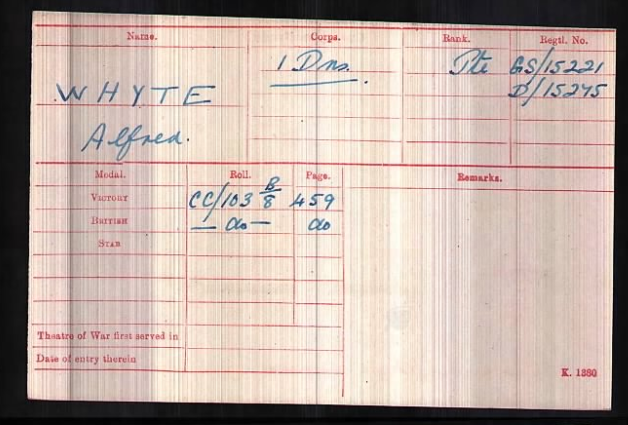 Name. Corps. Rank. Regtl. No.
1 Dns. Pte GS/15221
WHYTE D/15275
Alfred.
Medal. Roll. Page. Remarks.
VICTORY CC/103 B/8 459
BRITISH — do — do
STAR
Theatre of War first served in
Date of entry therein
K. 1380